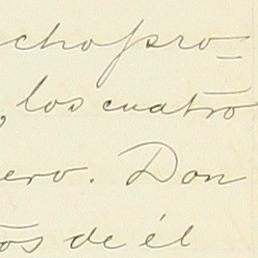 cho pro=
, los cuatro
ero. Don
os de él